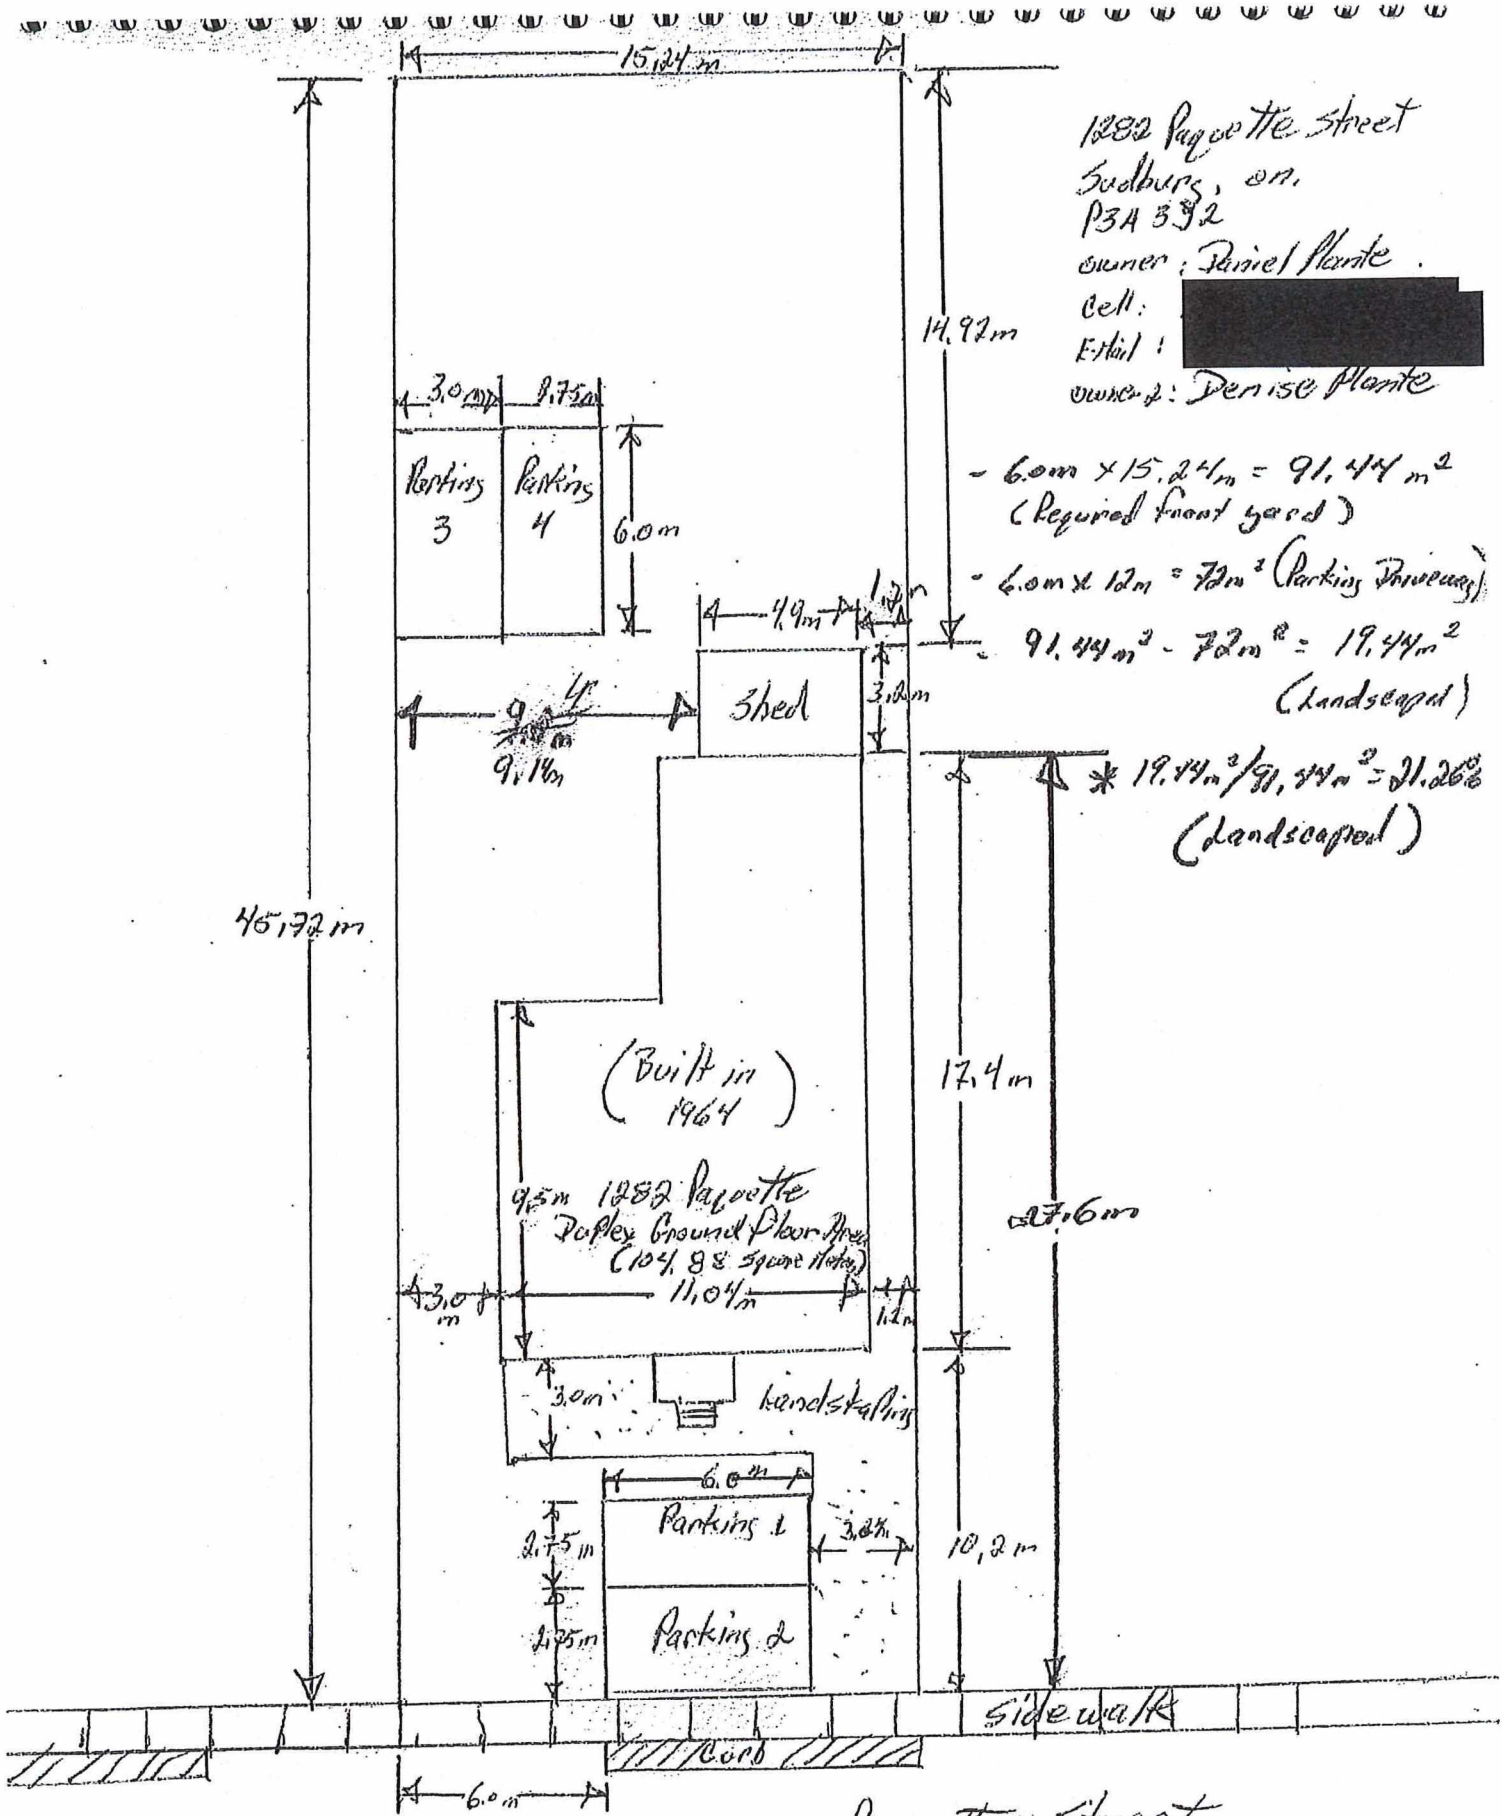 15.24 m
1282 Paquette Street
Sudbury, on.
P3A
owner: Daniel Plante
Cell:
E-Mail:
owner 2: Denise Plante
14.92m
3.0m
2.75m
Parking
3
Parking
4
6.0m
- 6.0m x 15.24m = 91.44 m²
(Required front yard)
- 6.0m x 12m = 72m² (Parking Driveway)
- 91.44m² - 72m² = 19.44m²
(Landscaped)
* 19.44m²/91.44m² = 21.26%
(Landscaped)
4.9m
1.2m
Shed
3.2m
9.14m
45.72m
(Built in
1964)
17.4m
9.5m
1282 Paquette
Duplex Ground Floor Area
(104.88 Square Meters)
27.6m
3.0
m
11.04m
1.2m
3.0m
Landskaping
6.0m
Parking 1
2.75m
10.2m
Parking 2
2.75m
Sidewalk
Curb
6.0m